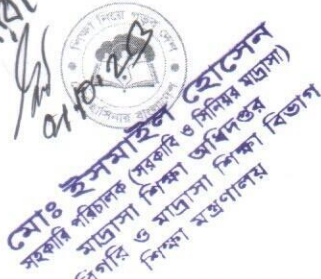 শিক্ষা নিয়ে গড়ব দেশ
মোঃ ইসমাইল হোসেন
সহকারি পরিচালক (সরকারি ও সিনিয়র মাদ্রাসা)
মাদ্রাসা শিক্ষা অধিদপ্তর
কারিগরি ও মাদ্রাসা শিক্ষা বিভাগ
শিক্ষা মন্ত্রণালয়